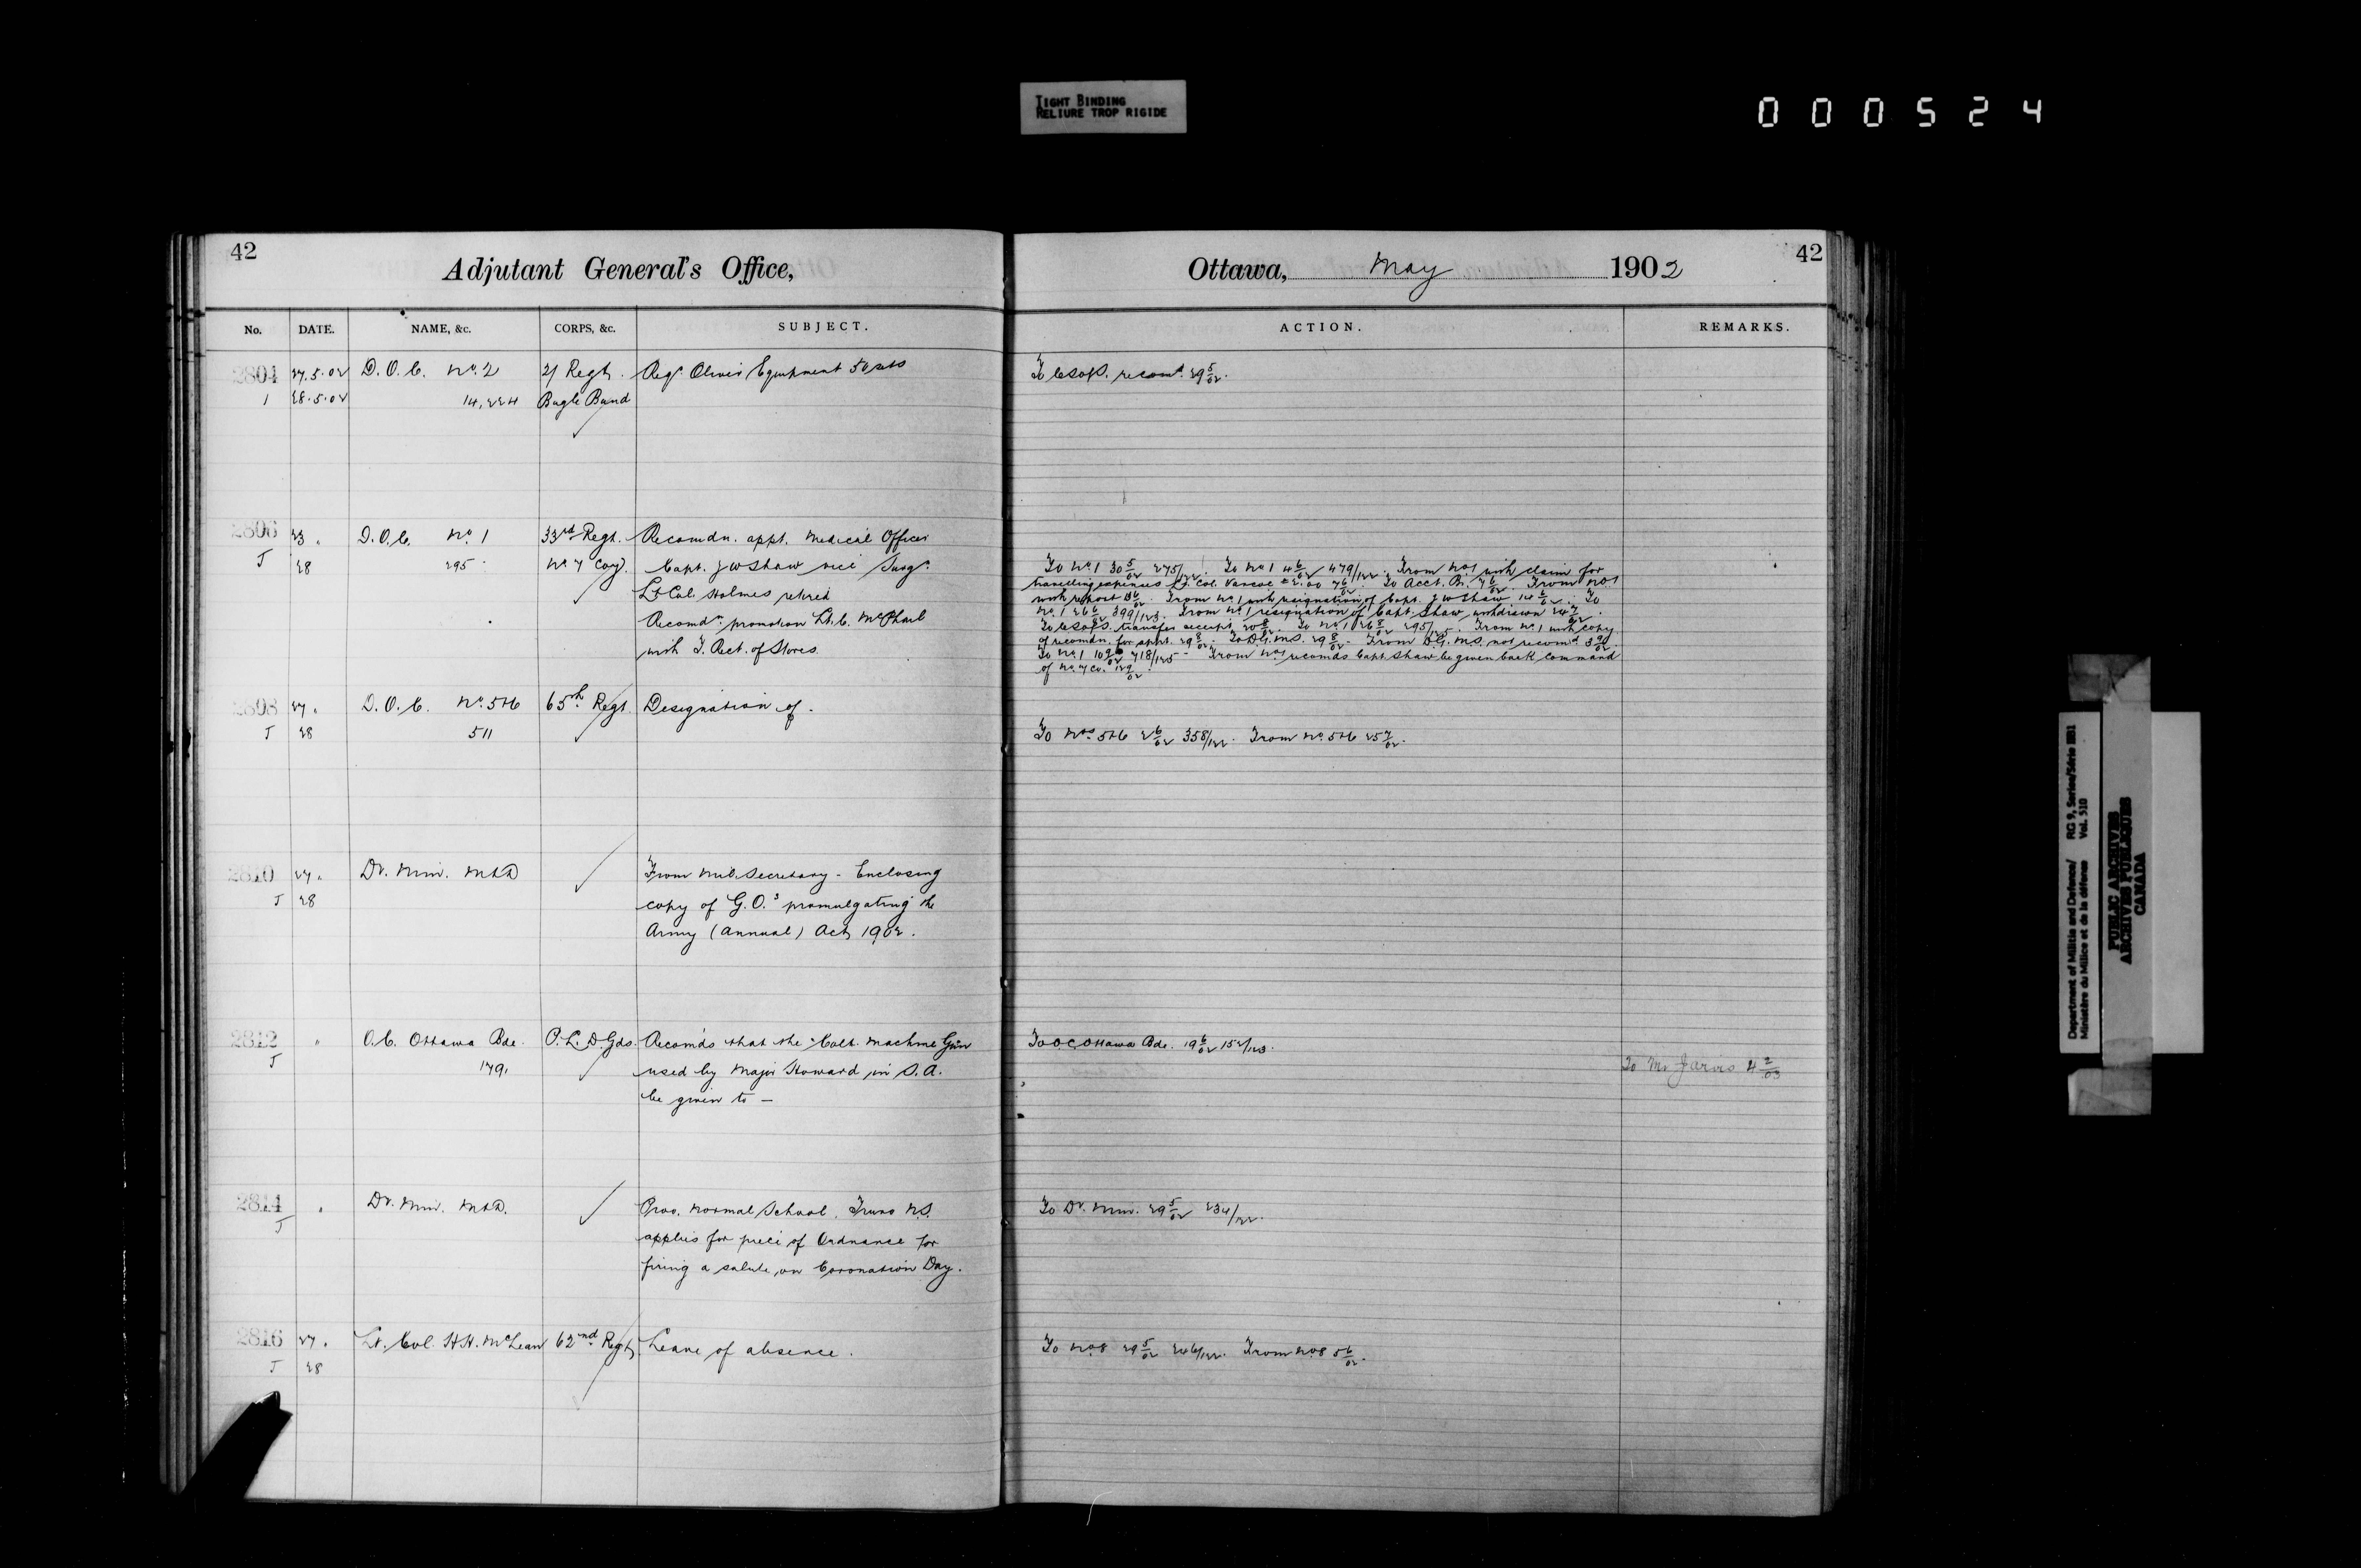 TIGHT BINDING
RELIURE TROP RIGIDE
000524
42
Adjutant General's Office,
No. DATE. NAME, &c. CORPS, &c. SUBJECT.
2804 27.5.02 D.O.C. No. 2 21 Regt. Reqn. Oliver Equipment 50 sets
1 28.5.02 14,224 Bugle Band
2806 23 " D.O.C. No. 1 33rd Regt. Recomdn. appt. Medical Officer
J 28 295 No. 7 Coy. Capt. J W Shaw vice Surg.
Lt Col. Holmes retired
Recomdn. promotion Lt. C. McPhail
with T. Rect. of Stores.
2808 27 " D.O.C. No. 5&6 65th Regt. Designation of.
J 28 511
2810 27 " Dr. Min. M&D From Mil. Secretary - Enclosing
J 28 copy of G.O.s promulgating the
Army (Annual) Act, 1902.
2812 " O.C. Ottawa Bde. P.L.D. Gds. Recomds that the Colt. Machine Gun
J 179 used by Major Howard in S.A.
be given to —
2814 " Dr. Min. M&D. Prov. Normal School, Truro N.S.
J applies for piece of Ordnance for
firing a salute on Coronation Day.
2816 27 " Lt. Col. H.H. McLean 62nd Regt. Leave of absence.
J 28
Ottawa, May 1902
42
ACTION. REMARKS.
To C S of S. recomd. 29 5/02.
To No. 1 30 5/02 275/122. To No 1 4 6/02 479/122. From No 1 with claim for
travelling expenses Lt. Col. 7 6/02. To Acct. Br. 7 6/02. From No 1
with report 13 6/02. From No. 1 with resignation of Capt. J W Shaw 14 6/02. To
No. 1 26 6/02 399/123. From No. 1 resignation of Capt. Shaw, withdrawn 24 7/02.
To C S of S. transfer receipt 20 8/02. To No. 1 26 8/02 295/125. From No. 1 with copy
of recomdn. for appt. 29 8/02. To D.G.M.S. 29 8/02. From D.G.M.S. not recomd 3 9/02.
To No. 1 10 9/02 718/125 - From No 1 recomds Capt. Shaw be given back command
of No. 7 Co. 12 9/02.
To Nos. 5&6 2 6/02 358/122. From No. 5&6 25 7/02.
To O.C. Ottawa Bde. 19 6/02 152/123.
To Mr Jarvis 4 2/03
To Dr. Min. 29 5/02 234/122.
To No 8 29 5/02 246/122. From No 8 5 6/02.
Department of Militia and Defence/ RG 9, Series/Série IIB1
Ministère du Milice et de la défense Vol. 510
PUBLIC ARCHIVES
ARCHIVES PUBLIQUES
CANADA